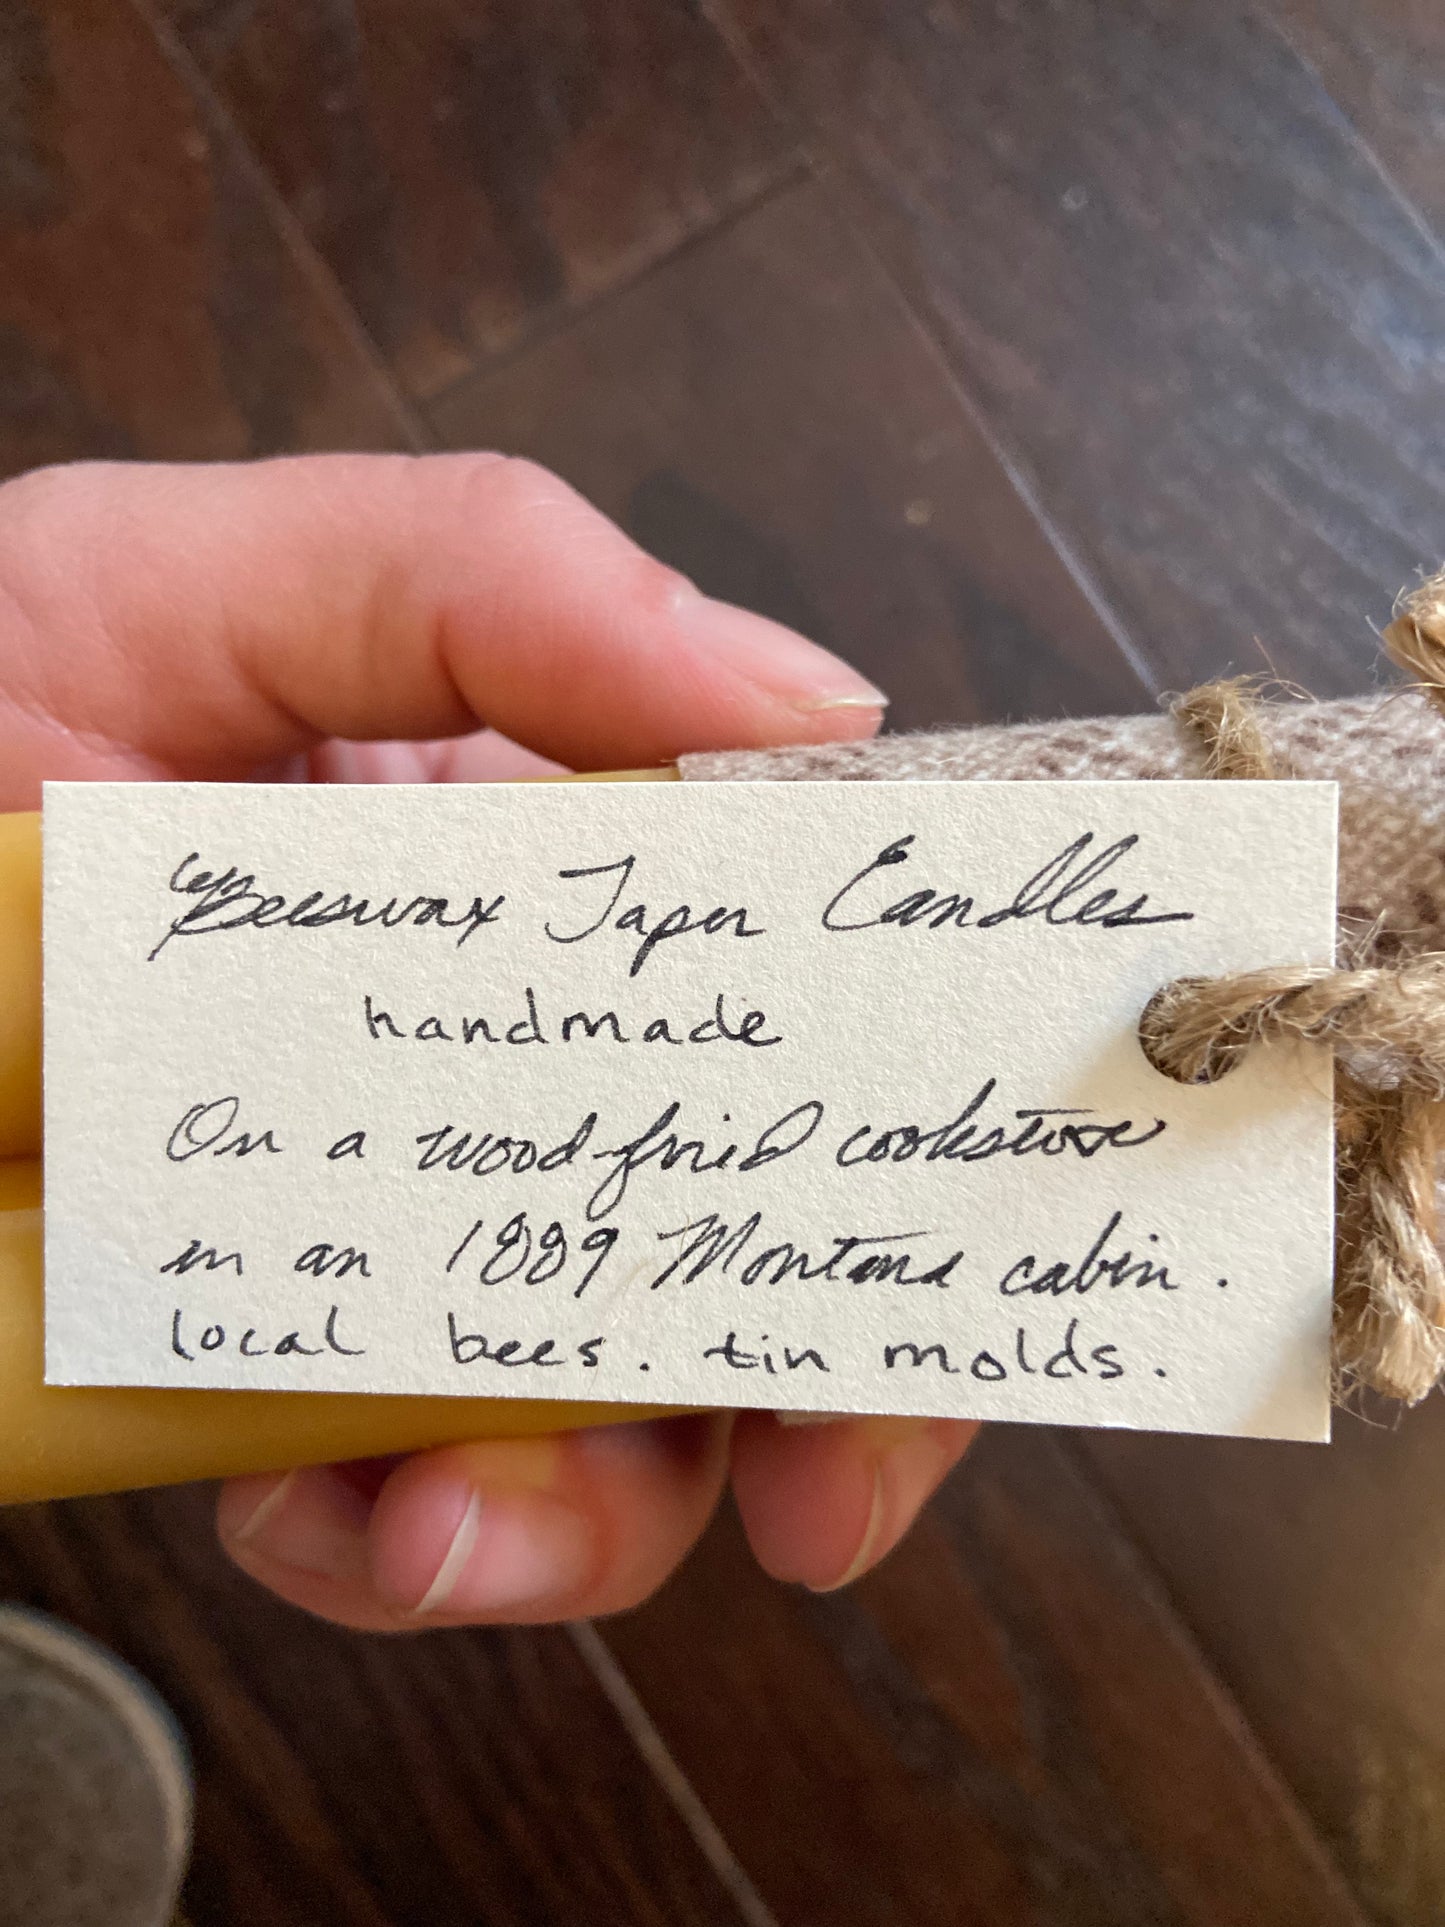 Beeswax Taper Candles
handmade
On a wood-fired cookstove
in an 1889 Montana cabin.
local bees. tin molds.